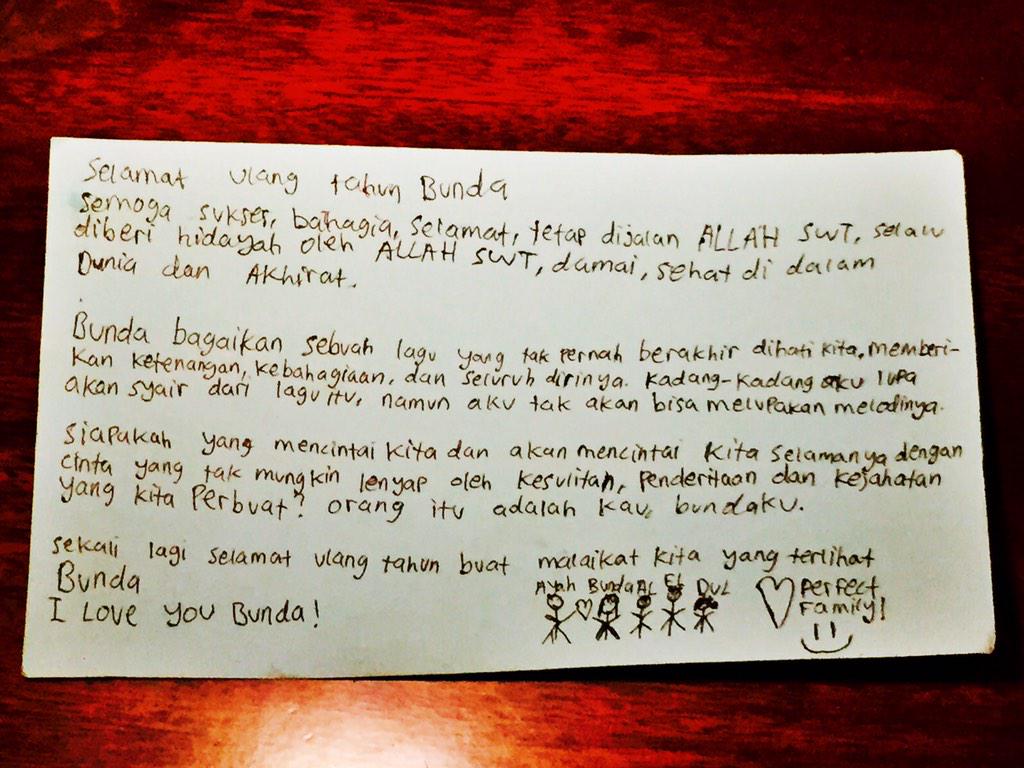 Selamat ulang tahun Bunda
semoga sukses, bahagia, selamat, tetap dijalan ALLAH SWT, selalu
diberi hidayah oleh ALLAH SWT, damai, sehat di dalam
Dunia dan Akhirat.
Bunda bagaikan sebuah lagu yang tak pernah berakhir dihati kita, memberi-
kan ketenangan, kebahagiaan, dan seluruh dirinya. kadang-kadang aku lupa
akan syair dari lagu itu, namun aku tak akan bisa melupakan melodinya.
Siapakah yang mencintai kita dan akan mencintai kita selamanya dengan
cinta yang tak mungkin lenyap oleh kesulitan, penderitaan dan kejahatan
yang kita perbuat? orang itu adalah kau, bundaku.
sekali lagi selamat ulang tahun buat malaikat kita yang terlihat
Bunda
I Love you Bunda!
Ayah Bunda AL El DUL
perfect
Family!